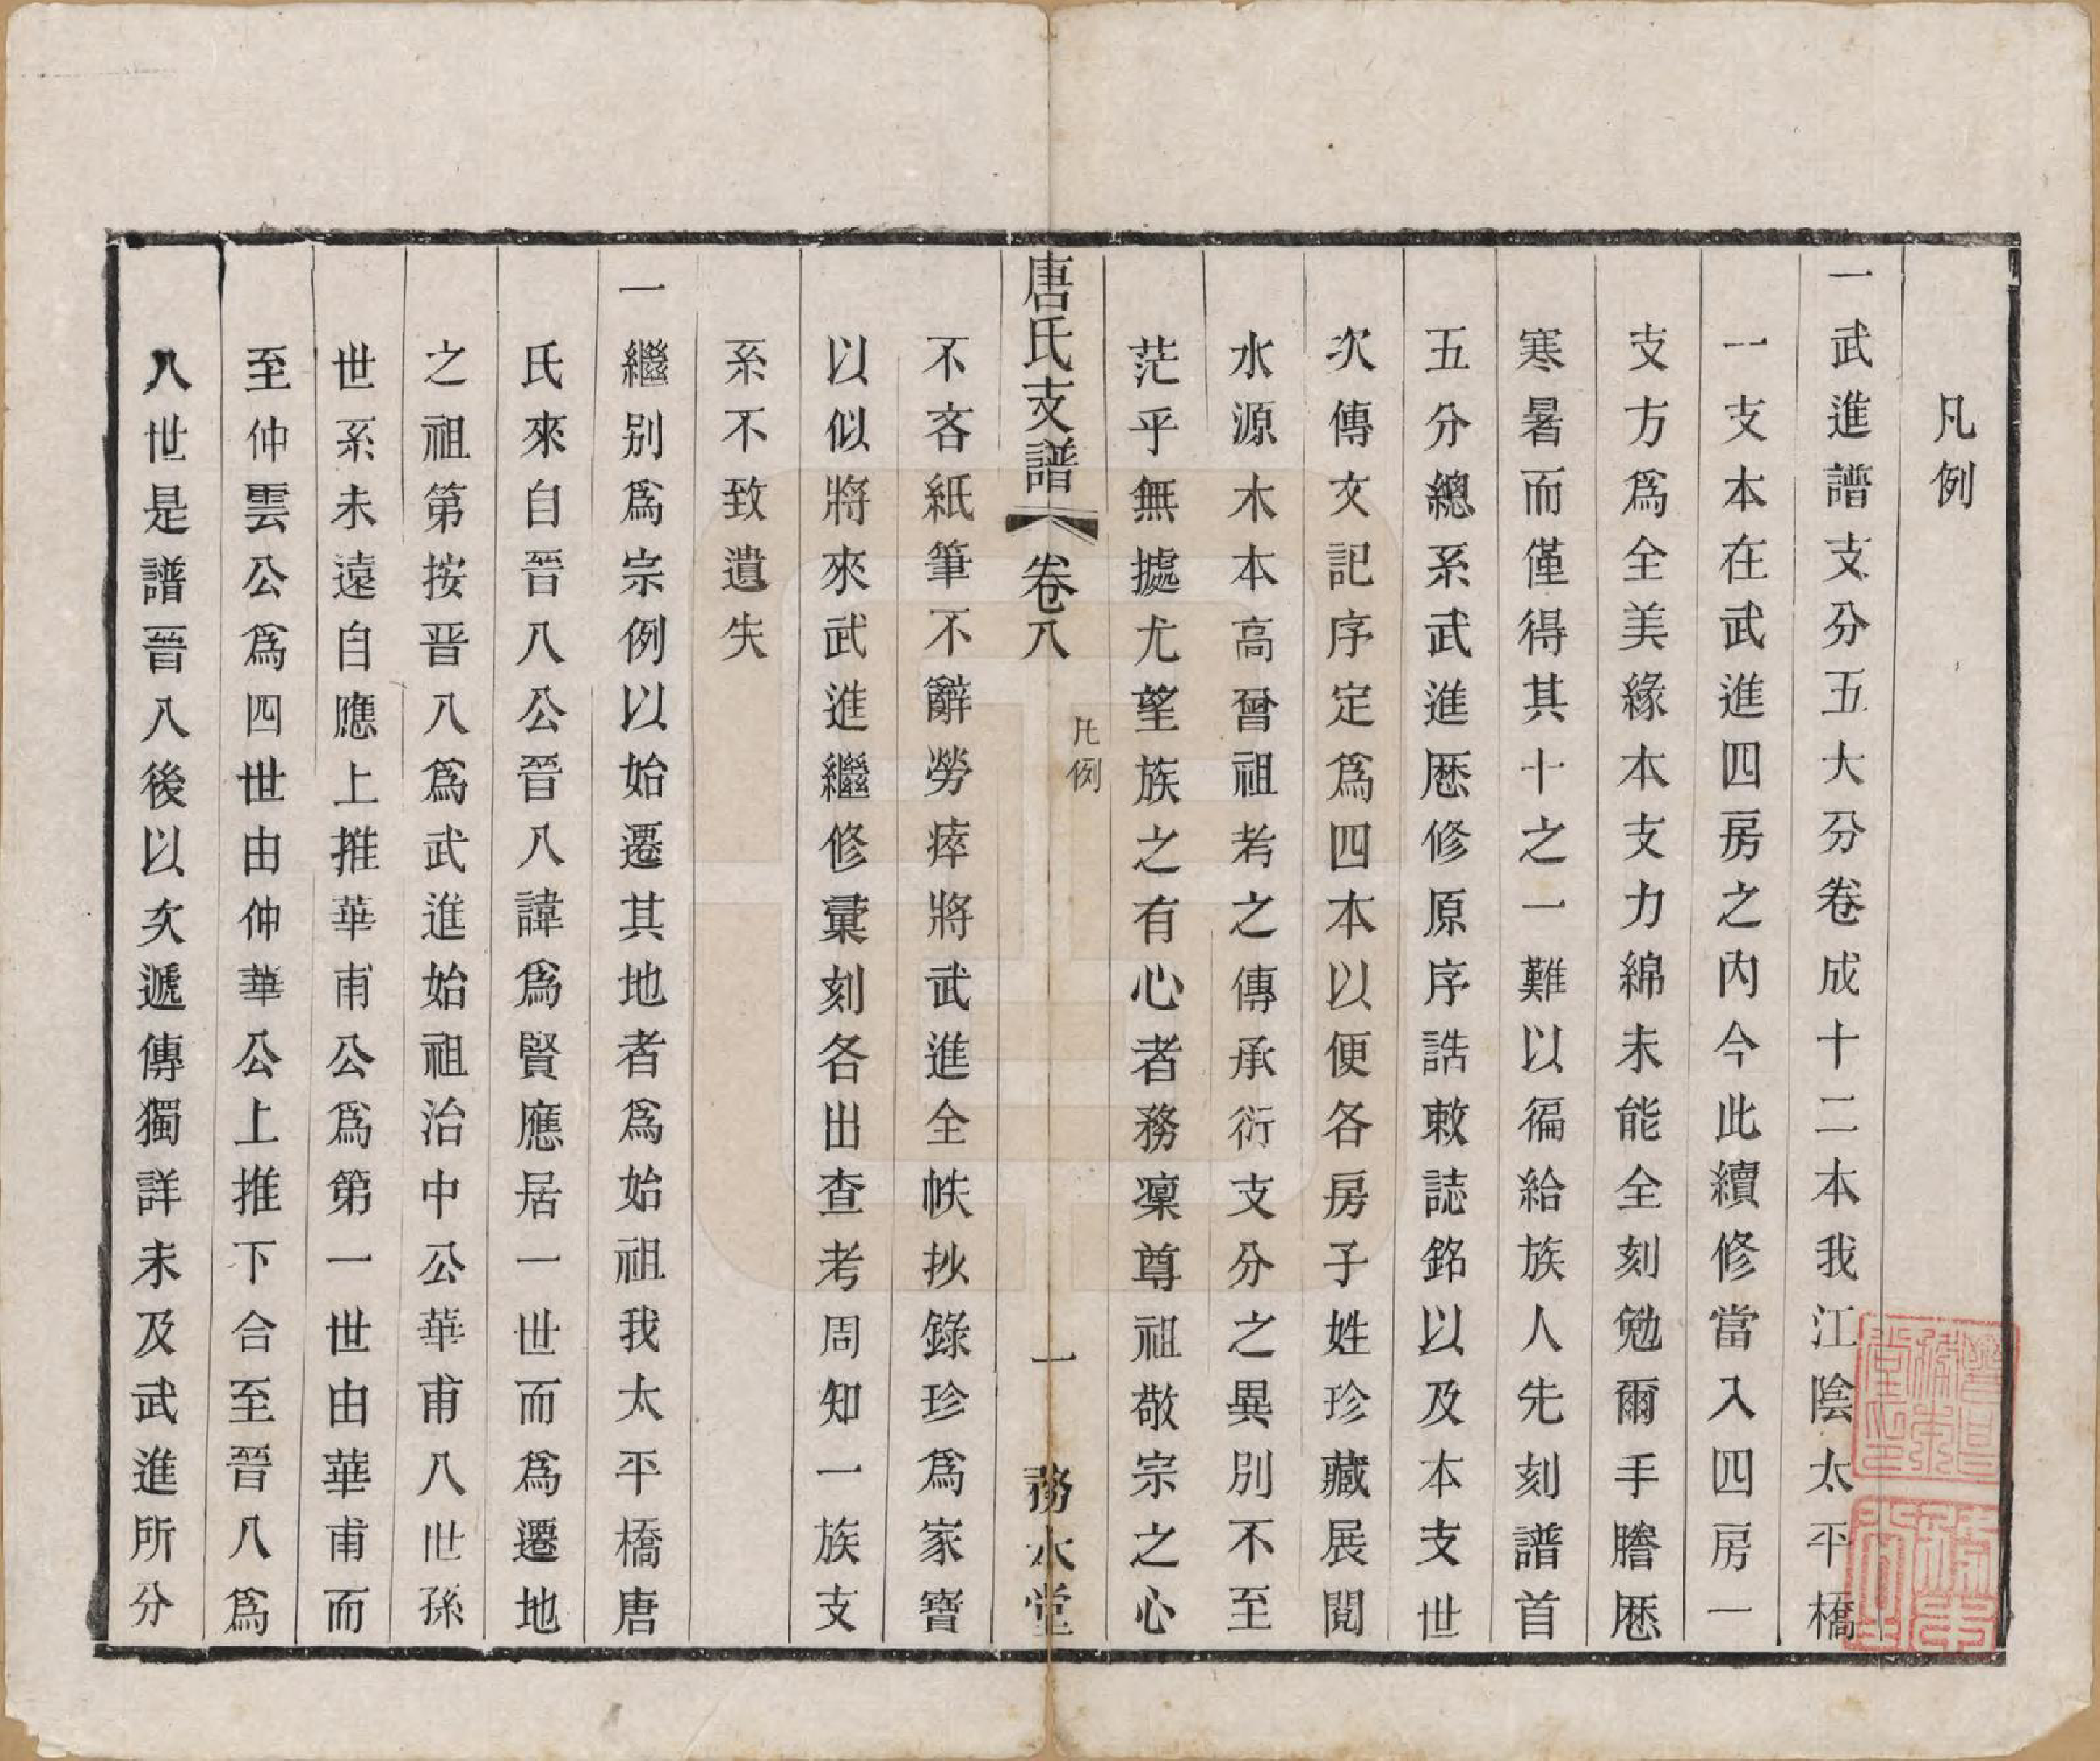 凡例
一武進譜支分五大分卷成十二本我江陰太平橋
一支本在武進四房之內今此續修當入四房一
支方爲全美緣本支力綿未能全刻勉爾手謄厯
寒暑而僅得其十之一難以徧給族人先刻譜首
五分總系武進厯修原序誥敕誌銘以及本支世
次傳文記序定爲四本以便各房子姓珍藏展閱
水源木本高曾祖考之傳承衍支分之異別不至
茫乎無據尤望族之有心者務凜尊祖敬宗之心
唐氏支譜
卷八
凡例
一
務本堂
不吝紙筆不辭勞瘁將武進全帙抄錄珍爲家寶
以似將來武進繼修彙刻各出查考周知一族支
系不致遺失
一繼別爲宗例以始遷其地者爲始祖我太平橋唐
氏來自晉八公晉八諱爲賢應居一世而爲遷地
之祖第按晋八爲武進始祖治中公華甫八世孫
世系未遠自應上推華甫公爲第一世由華甫而
至仲雲公爲四世由仲華公上推下合至晉八爲
八世是譜晉八後以次遞傳獨詳未及武進所分